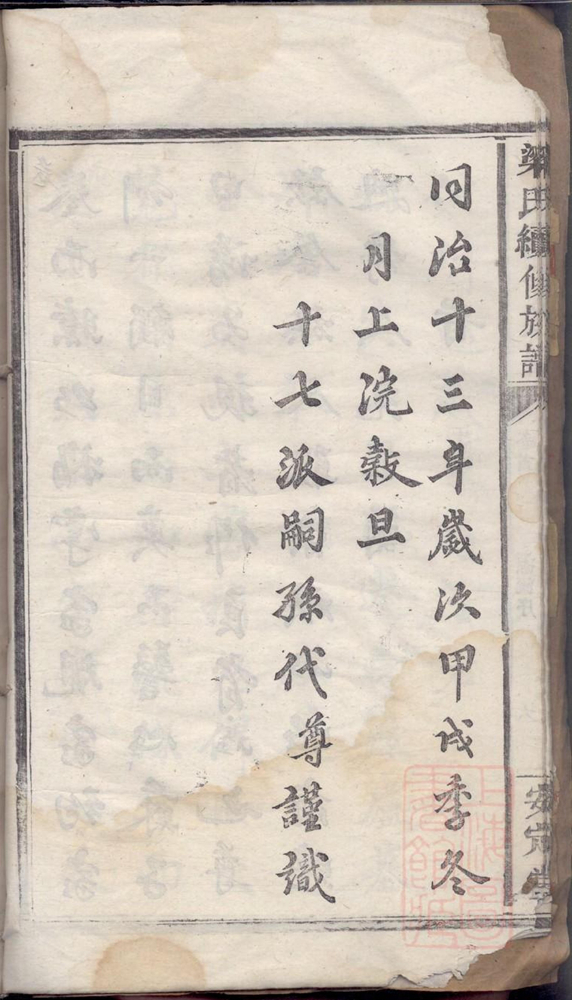 梁氏續修族譜
安定堂
同治十三年歲次甲戌季冬
月上浣穀旦
十七派嗣孫代尊謹識